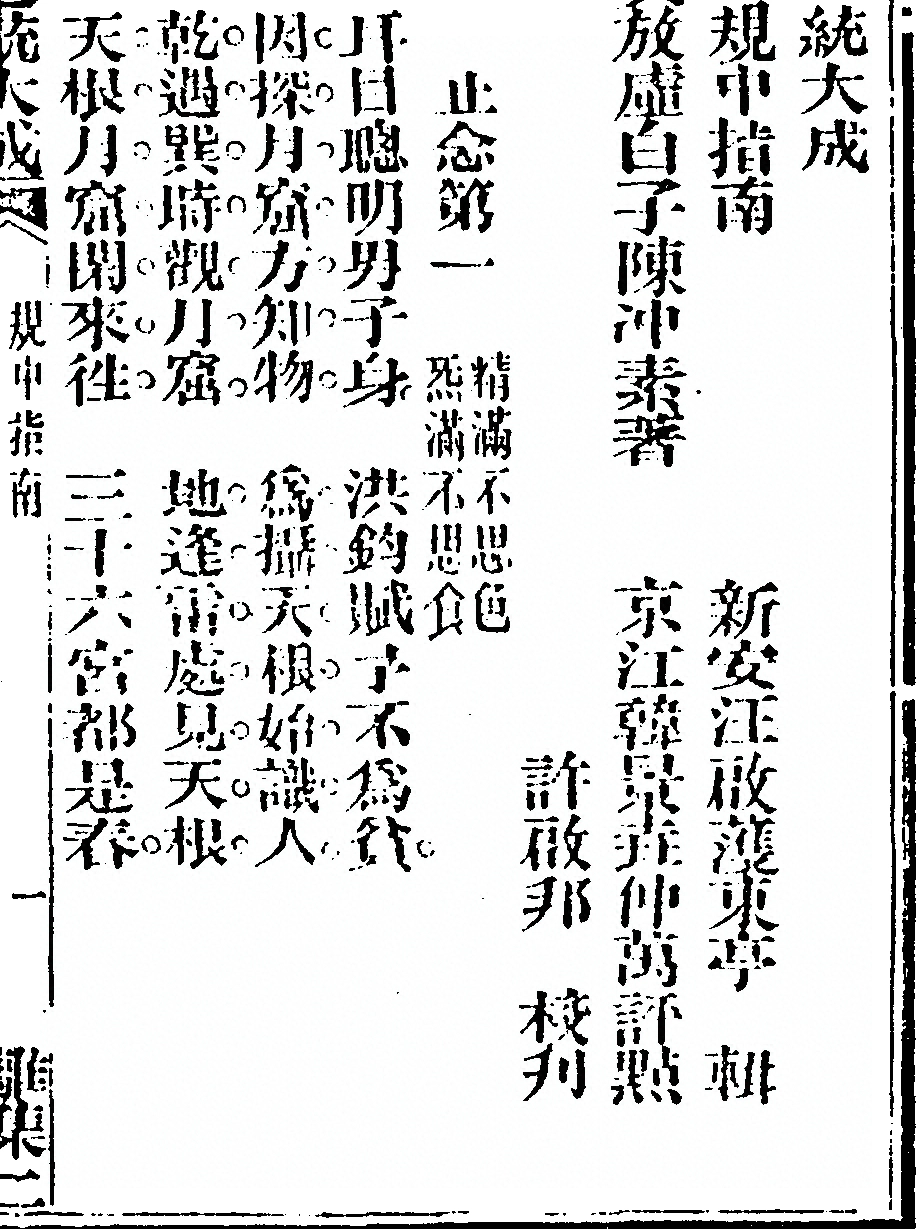 統大成
規中指南
新安汪啟濩東亭 輯
放虛白子陳冲素著
京江韓景垚仲萬評點
許啟邦 校刋
止念第一
精滿不思色
炁滿不思食
耳目聰明男子身 洪鈞賦予不爲貧
因探月窟方知物 爲攝天根始識人
乾遇巽時觀月窟 地逢雷處見天根
天根月窟閒來徃 三十六宮都是春
統大成
規中指南
一
集二